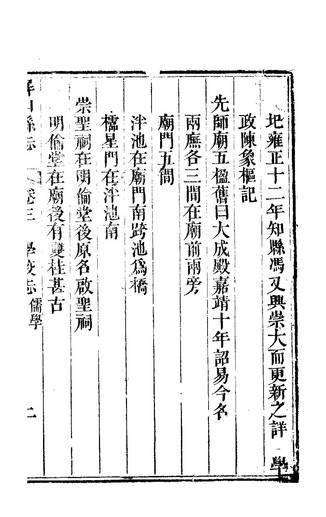 圯雍正十二年知縣馮又興崇大而更新之詳學
政陳象樞記
先師廟五楹舊曰大成殿嘉靖十年詔易今名
兩廡各三間在廟前兩旁
廟門五間
泮池在廟門南跨池爲橋
櫺星門在泮池南
崇聖祠在明倫堂後原名啟聖祠
明倫堂在廟後有雙桂甚古
屏山縣志 卷三 學校志 儒學 二